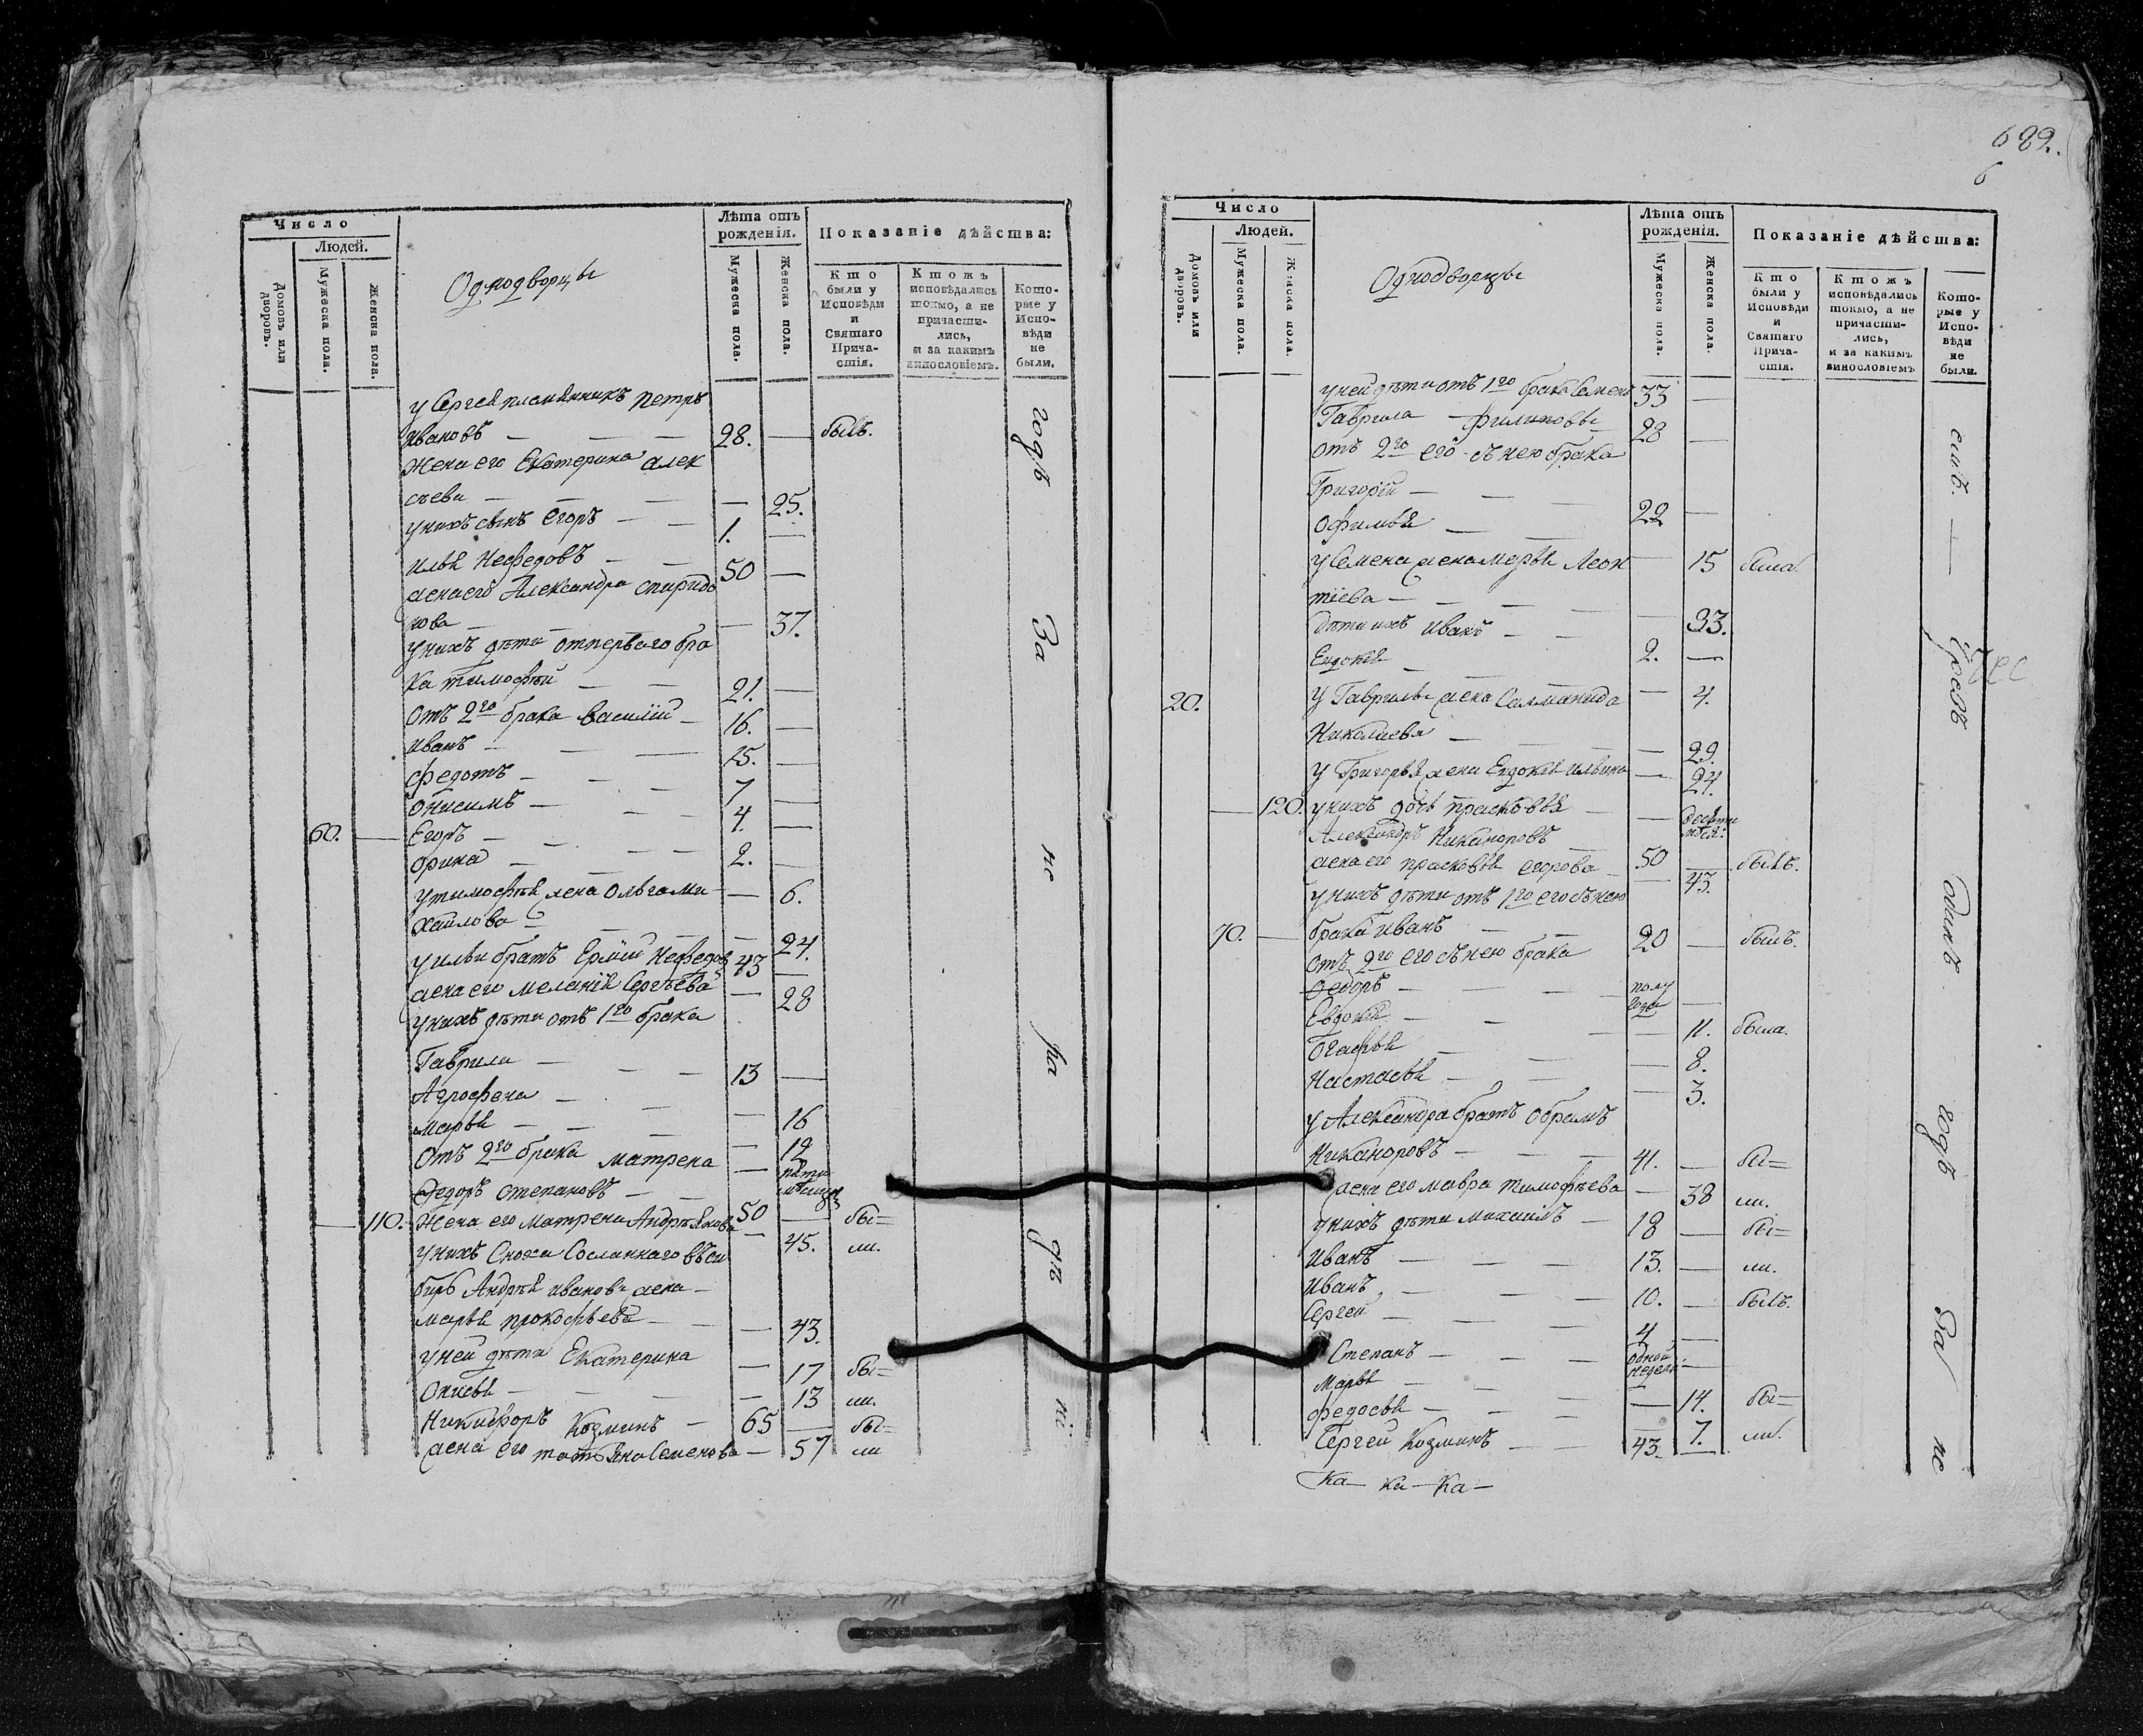 Число
Людей.
Домовъ или дворовъ.
Мужеска пола.
Женска пола.
Однодворцы
Лѣта отъ рожденія.
Мужеска пола.
Женска пола.
Показаніе дѣйства:
Кто были у Исповѣди и Святаго Прича-стія.
Ктожъ исповѣдались токмо, а не причасти-лись, и за какимъ винословіемъ.
Кото-рые у Испо-вѣди не были.
у Сергея племянникъ Петръ
Ивановъ — 28. — былъ.
Жена его Екатерина алек
сѣева — — 25.
у нихъ сынъ Егоръ — 1. —
Илья Нефедовъ — 50 —
жена его Александра спиридо
нова — — 37.
у нихъ дѣти отпервагобра
ка тимофѣй — 21. —
отъ 2го брака василій — 16. —
иванъ — 15. —
федотъ — 7 —
онисимъ — 4. —
60. — Егоръ — 2. —
орина — — 6.
у тимофѣя жена ольга ми
хайлова — — 24.
у ильи братъ Ермій Нефедовъ 43 —
жена его меланія Сергѣева — 28
у нихъ дѣти отъ 1го брака
Гаврила — 13 —
Агрофена — — 16
марья — — 12
отъ 2го брака матрена — пяти месяцъ
Федоръ степановъ — 50 — бы=
— 110. Жена его матрена Андрѣянова — 45. ли.
у нихъ Сноха Сосланнаго въ си
бирь Андрѣя иванова жена —
марья прокофьева — — 43.
у ней дѣти Екатерина — 17 бы=
онисья — — 13 ли.
Никифоръ Козминъ — 65 — бы=
жена его татьяна Семенова — 57 ли
годъ За не на дѣ
682.
6
Число
Людей.
Домовъ или дворовъ.
Мужеска пола.
Женска пола.
Однодворцы
Лѣта отъ рожденія.
Мужеска пола.
Женска пола.
Показаніе дѣйства:
Кто были у Исповѣди и Святаго Прича-стія.
Ктожъ исповѣдались токмо, а не причасти-лись, и за какимъ винословіемъ
Кото-рые у Испо-вѣди не были.
у ней дѣти отъ 1го брака Семенъ 33 —
Гаврила — филиповы 28 —
отъ 2го его съ нею брака
Григорій — 22 —
офимья — — 15 была.
у Семена жена марья Леон
тіева — — 33.
дѣти ихъ иванъ — 2. —
Евдокея — — 4.
20. у Гаврилы жена Саламанида
Николаева — — 29.
у Григорья жена Евдокея ильина — 24.
— 120. у нихъ дочь прасковья — десяти
Александръ Никаноровъ — 50 — былъ.
жена его прасковья егорова — 43.
у нихъ дѣти отъ 1го его съ нею
70. — брака иванъ — 20 — былъ.
отъ 2го его съ нею брака
Федоръ — полу года —
Евдокея — — 11. была.
Огафья — — 8.
Настасья — — 3.
у Александра братъ обрамъ
Никаноровъ — 41. — бы=
жена его мавра тимофѣева — 38 ли.
у нихъ дѣти михаилъ — 18 — бы=
иванъ — 13. — ли.
иванъ — 10. — былъ.
Сергей — 4 —
Степанъ — одной недели —
марья — — 14. бы=
федосья — — 7. ли.
Сергей Козминъ — 43. —
Ка— ка—ка—
одинъ годъ За не